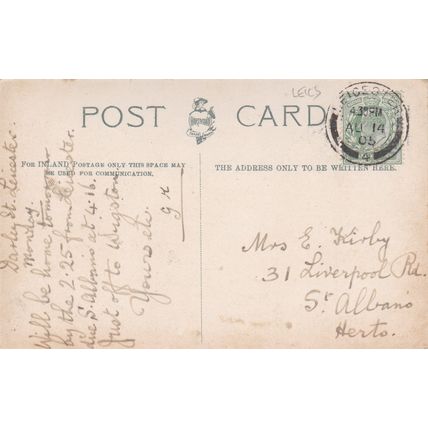 LEICS
POST CARD
LEICESTER
4.30PM
AU 14
05
4
FOR INLAND POSTAGE ONLY THIS SPACE MAY
BE USED FOR COMMUNICATION.
THE ADDRESS ONLY TO BE WRITTEN HERE.
St. Leicester
Monday
Will be home tomorrow
by the 2-25 from Leicester
due St Albans at 4.16.
Just off to Wigston
Yours etc.
Mrs E. Kirby
31 Liverpool Rd.
St Albans
Herts.